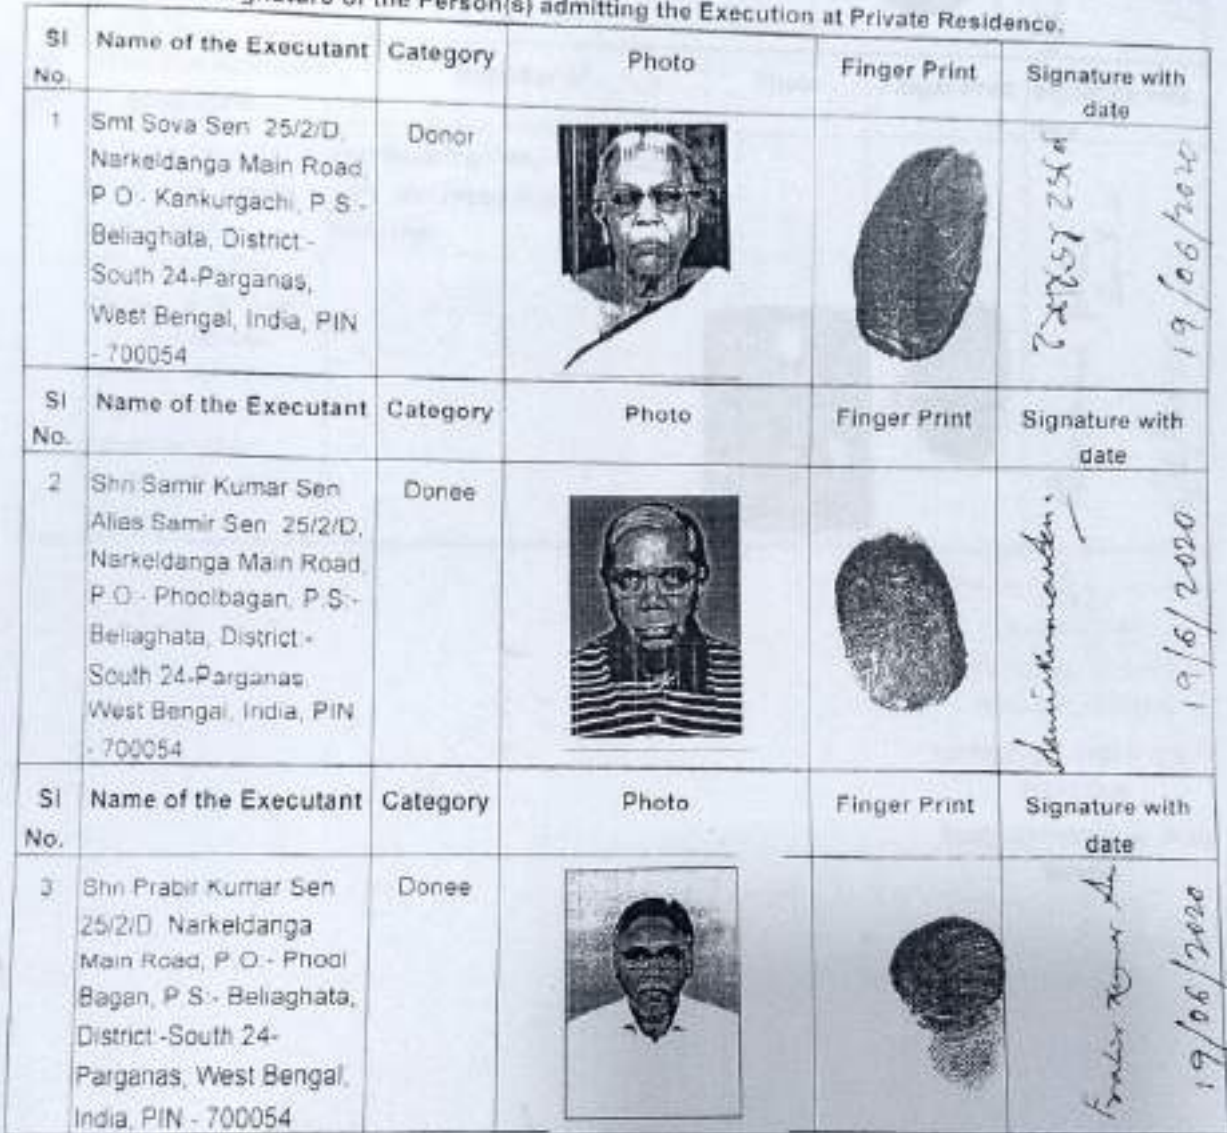 Signature of the Person(s) admitting the Execution at Private Residence.
Sl No. Name of the Executant Category Photo Finger Print Signature with date
1 Smt Sova Sen 25/2/D, Donor
Narkeldanga Main Road,
P.O:- Kankurgachi, P.S:-
Beliaghata, District:-
South 24-Parganas,
West Bengal, India, PIN
- 700054
19/06/2020
Sl No. Name of the Executant Category Photo Finger Print Signature with date
2 Shri Samir Kumar Sen Donee
Alias Samir Sen 25/2/D,
Narkeldanga Main Road,
P.O:- Phoolbagan, P.S:-
Beliaghata, District:-
South 24-Parganas,
West Bengal, India, PIN
- 700054
Samir Kumar Sen.
19/6/2020
Sl No. Name of the Executant Category Photo Finger Print Signature with date
3 Shri Prabir Kumar Sen Donee
25/2/D, Narkeldanga
Main Road, P.O:- Phool
Bagan, P.S:- Beliaghata,
District:-South 24-
Parganas, West Bengal,
India, PIN - 700054
Prabir Kumar Sen
19/06/2020